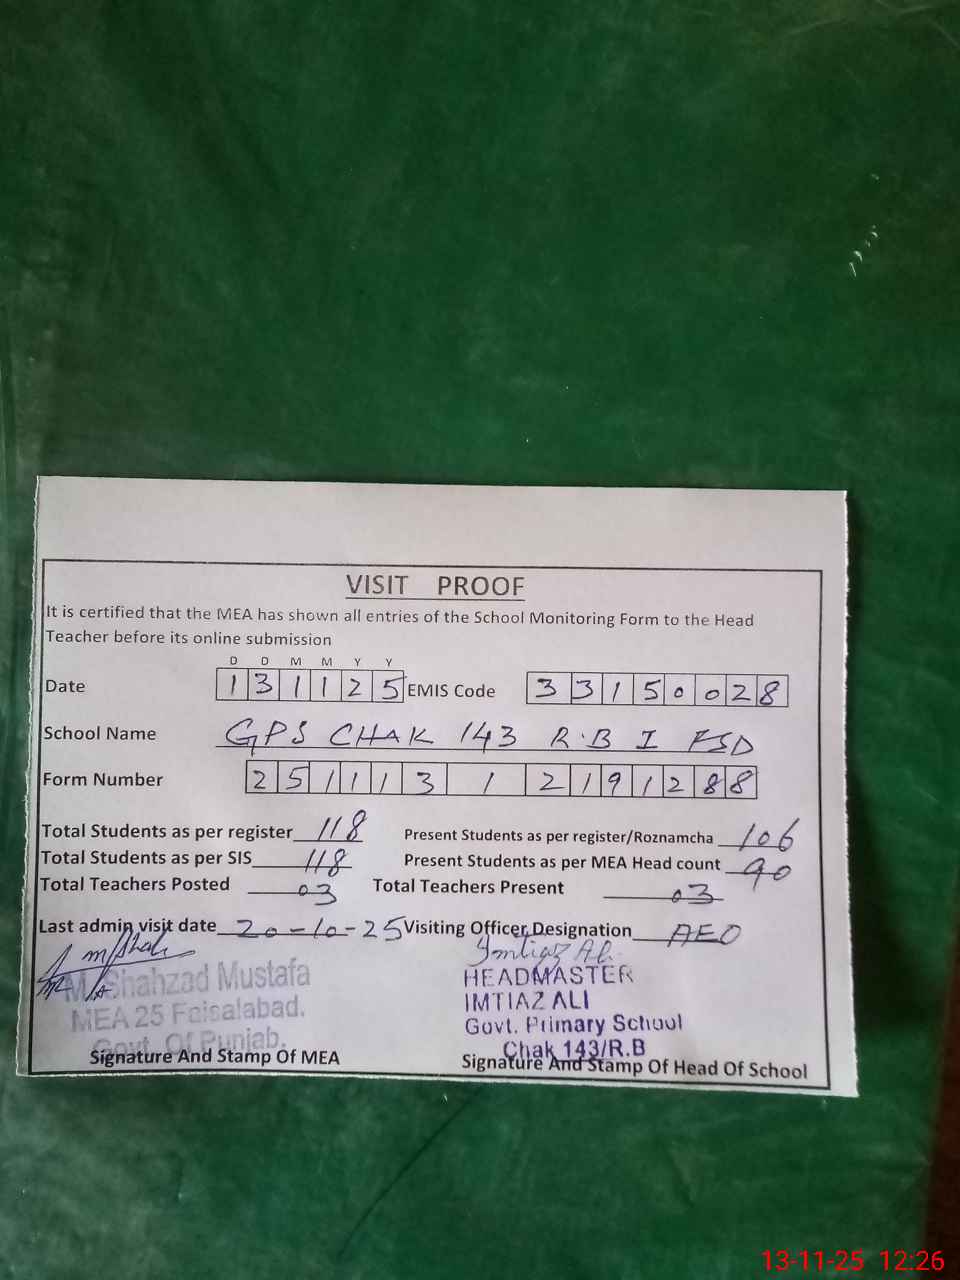 VISIT PROOF
It is certified that the MEA has shown all entries of the School Monitoring Form to the Head
Teacher before its online submission
D D M M Y Y
Date 1 3 1 1 2 5 EMIS Code 3 3 1 5 0 0 2 8
School Name GPS CHAK 143 R.B I FSD
Form Number 2 5 1 1 1 3 1 2 1 9 1 2 8 8
Total Students as per register 118 Present Students as per register/Roznamcha 106
Total Students as per SIS 118 Present Students as per MEA Head count 90
Total Teachers Posted 03 Total Teachers Present 03
Last admin visit date 20-10-25 Visiting Officer Designation AEO
Imtiaz Ali
M. Shahzad Mustafa HEADMASTER
MEA 25 Faisalabad. IMTIAZ ALI
Govt. Of Punjab. Govt. Primary School
Chak 143/R.B
Signature And Stamp Of MEA Signature And Stamp Of Head Of School
13-11-25 12:26